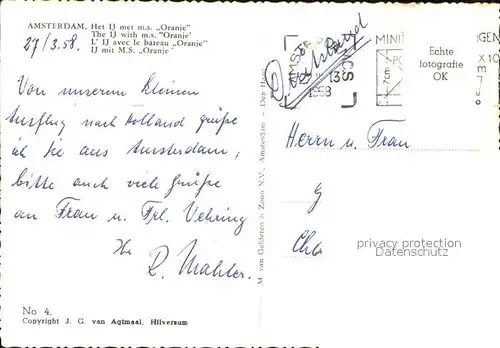 AMSTERDAM, Het IJ met m.s. „Oranje"
The IJ with m.s. "Oranje'
L' IJ avec le bateau „Oranje"
IJ mit M.S. „Oranje'
27/3.58.
Von unserem kleinen
Ausflug nach Holland grüße
ich Sie aus Amsterdam,
bitte auch viele Grüße
an Frau u. Frl. Vehring
Ihr
R. Mahler.
No 4.
Copyright J. G. van Agtmaal. Hilversum
M. van Gelderen & Zoon N.V., Amsterdam - Den Haag
Deutschland
1958
Echte
fotografie
OK
Herrn u. Frau
privacy protection
Datenschutz